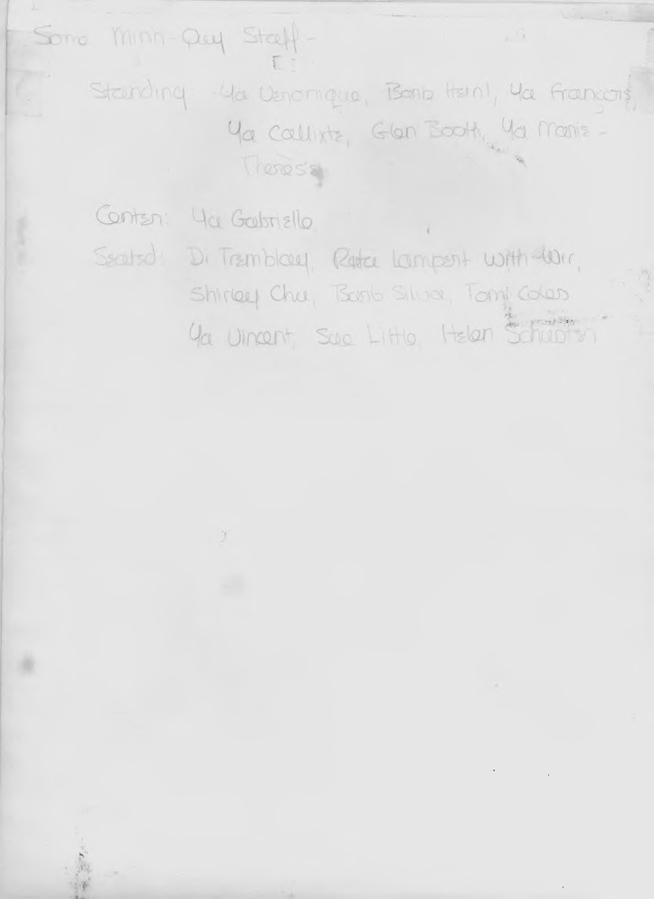 Some Minn-Quy Staff -
Standing: Ya Veronique, Barb Heinl, Ya François,
Ya Callixte, Glen Booth, Ya Marie-
Therese
Center: Ya Gabrielle
Seated: Di Tremblay, Lampert with Wir,
Shirley Chu, Barb Silva, Tomi Coles
Ya Vincent, Sue Little, Helen